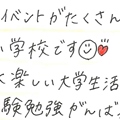 イベントがたくさん
学校です
楽しい大学生活
験勉強がんば